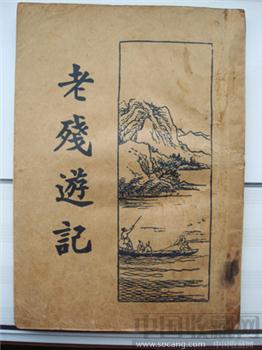 老殘遊記
中国收藏网
www.socang.com 中国收藏网